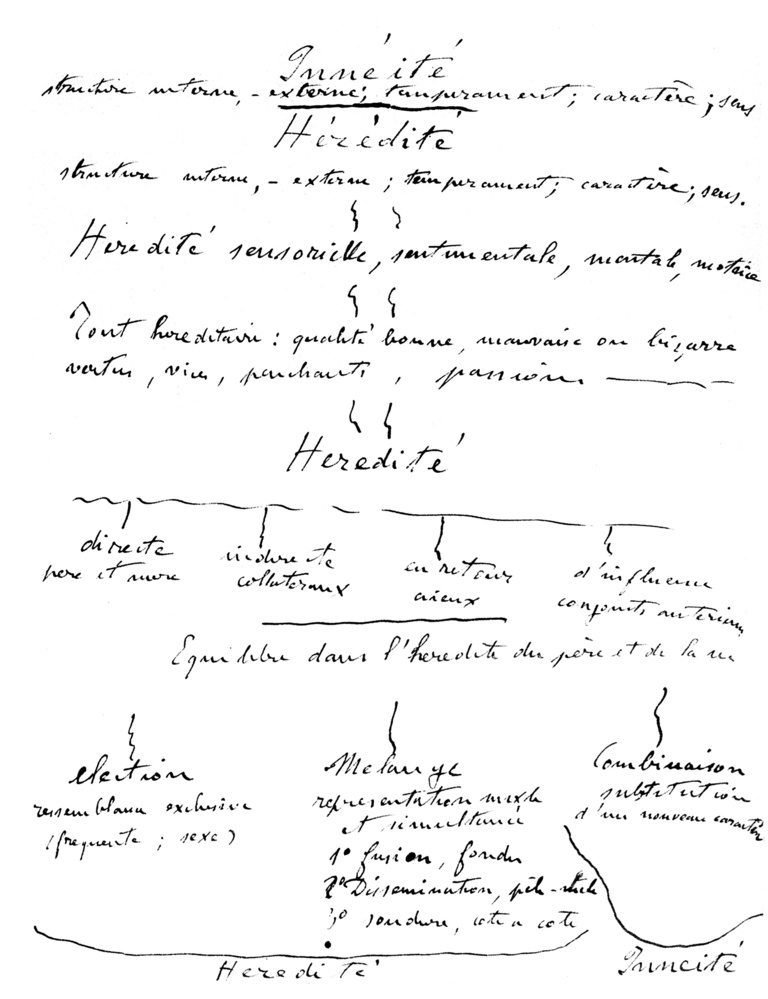 Innéité
structure interne, - externe; tempérament; caractère; sens
Hérédité
structure interne, - externe; tempérament; caractère; sens.
Heredité sensorielle, sentimentale, mentale, motrice
Tout hereditaire: qualité bonne, mauvaise ou bizarre
vertus, vices, penchants, passion.
Heredité
directe indirecte en retour d'influence
pere et mere collateraux aieux conjoints anterieurs
Equilibre dans l'heredite du père et de la
election Melange Combinaison
ressemblance exclusive representation mixte substitution
(frequente; sexe) et simultanée d'un nouveau caractère
1º fusion, fondu
2º Dissemination, pêle-mêle
3º soudure, cote a cote
Heredité Innéité